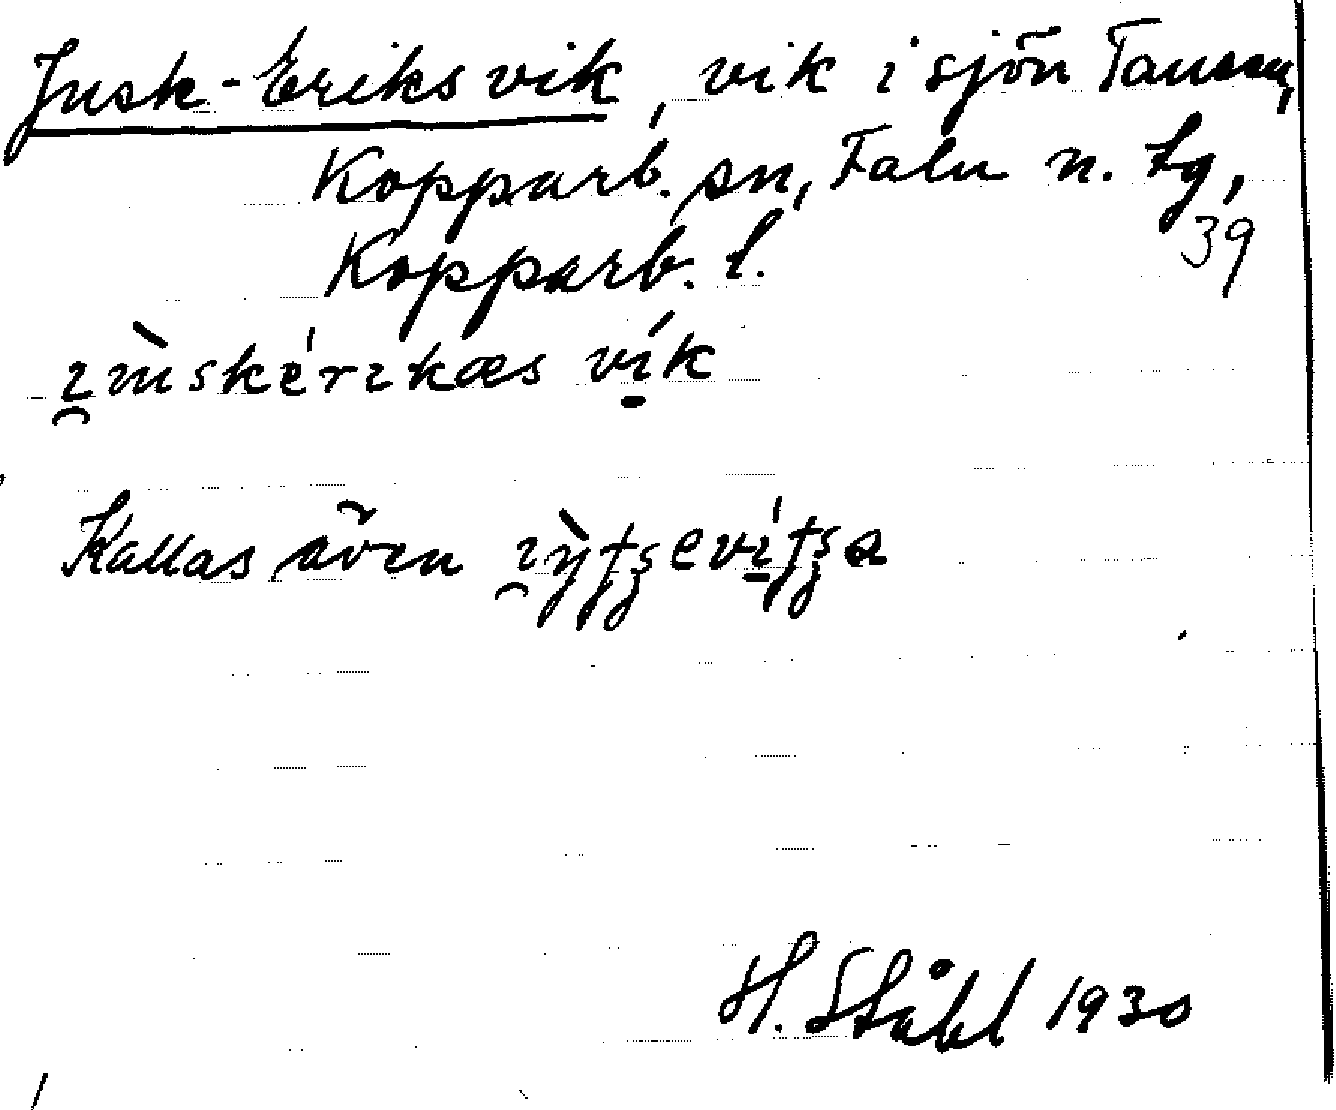 Jusk-Eriksvik, vik i sjön Tansen,
Kopparb. sn, Falu n. tg,
39
Kopparb. l.
Kallas även
H. Ståhl 1930